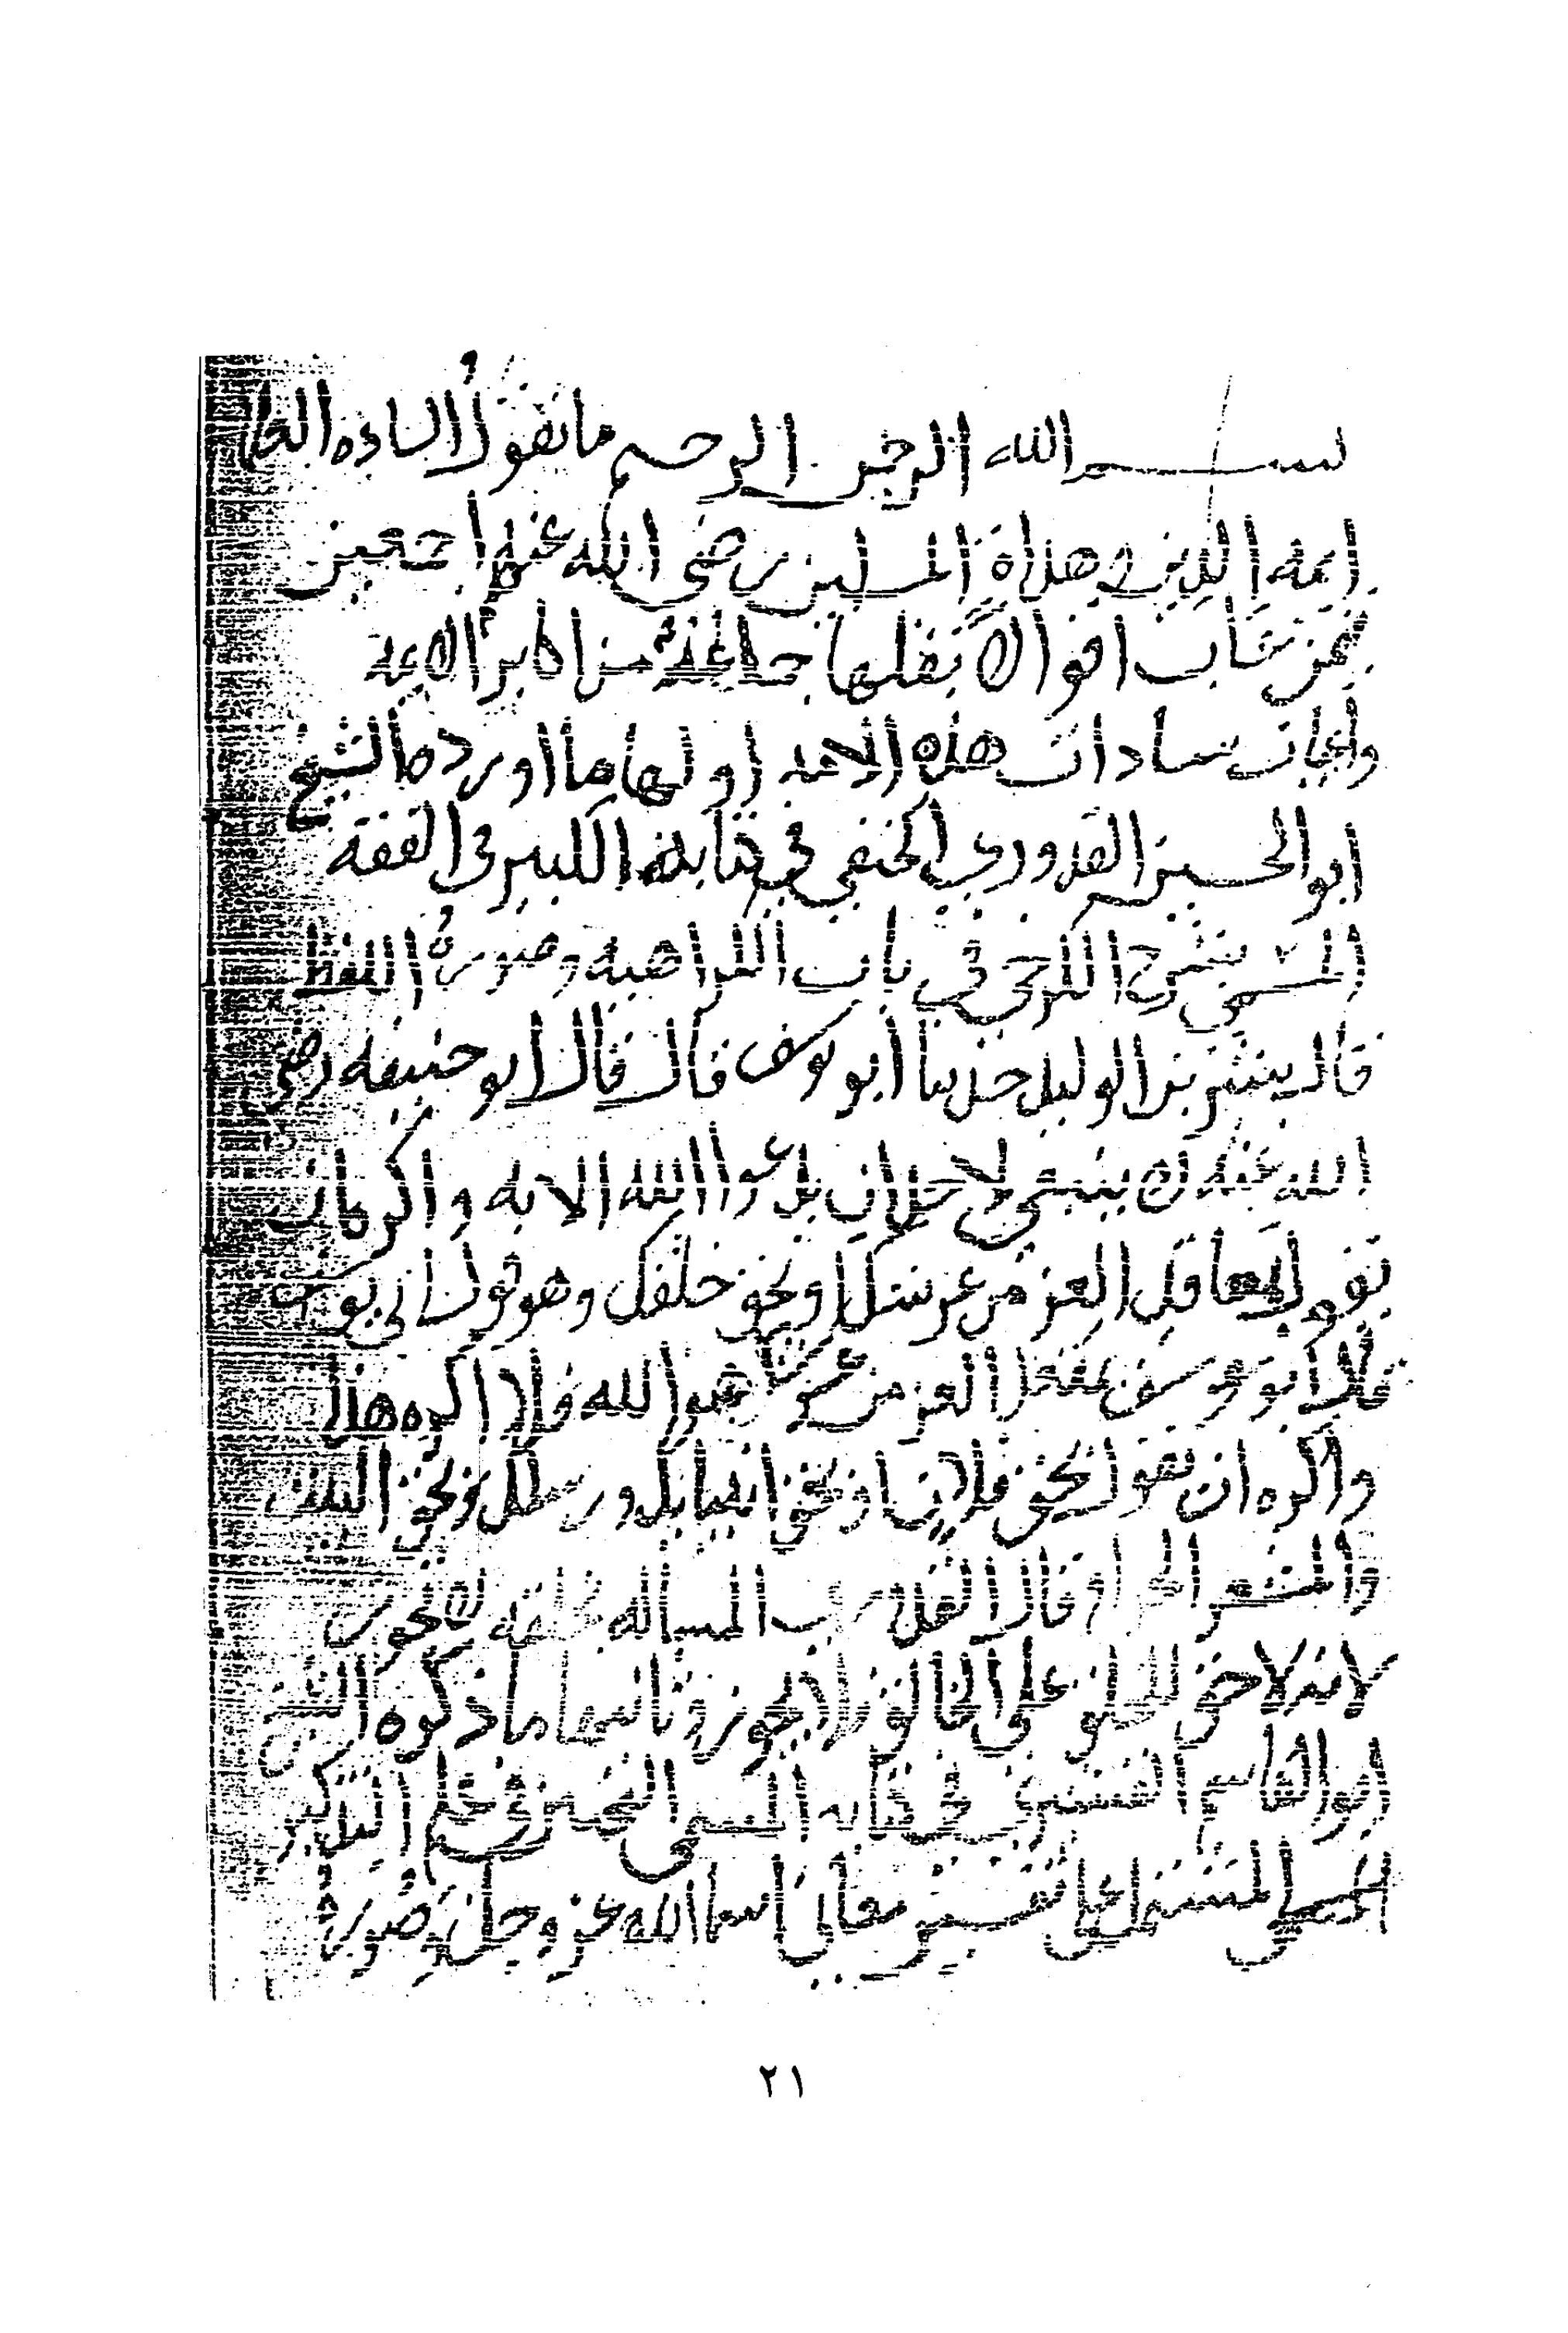 بسم الله الرحمن الرحيم ما تقول السادة العلما
ايمة الدين وهداة المسلمين رضي الله عنهم اجمعين
فيمن عاب اقوالا نقلها جماعة من اكابر الايمة
واعيان سادات هذه الامة اولها ما اورده الشيخ
ابو الحسين القدوري الحنفي في كتابه الكبير في الفقه
المسمى بشرح الكرخي في باب الكراهية وصورة اللفظ
قال بشر بن الوليد حدثنا ابو يوسف قال قال ابو حنيفة رضي
الله عنه لا ينبغي لاحد ان يدعوا الله الا به واكره ان
تقول بمعاقد العز من عرشك او بحق خلقك وهو قول ابي يوسف
قال ابو يوسف بمعقد العز من عرشه هو الله فلا اكره هذا
واكره ان تقول بحق فلان او بحق انبيايك ورسلك وبحق البيت
والمشعر الحرام قال القدوري المسألة بخلقه لا تجوز
لانه لا حق للخلق على الخالق فلا يجوز وثانيها ما ذكره الشيخ
ابو القاسم القشيري في كتابه المسمى التحبير في علم التذكير
المشتمل على تفسير معاني اسما الله عز وجل وصورة
٢١